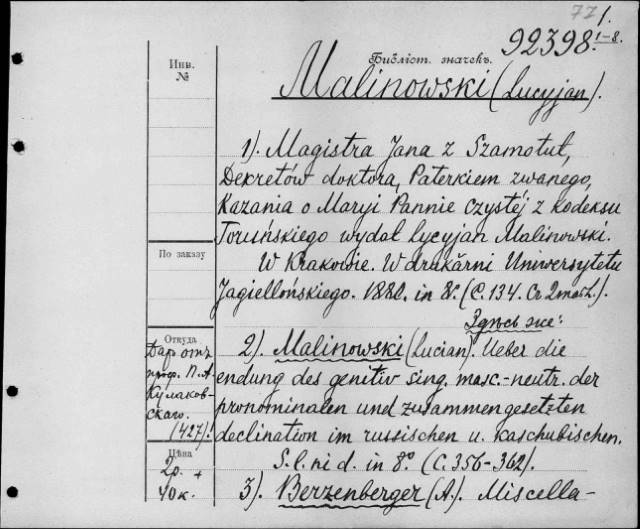 771.
92398.1-8.
Библіот. значекъ.
Инв.
№
Malinowski (Lucyjan).
1). Magistra Jana z Szamotuł,
Dekretów doktora, Paterkiem zwanego,
Kazania o Maryi Pannie czystéj z kodeksu
Toruńskiego wydał Lycyjan Malinowski.
По заказу
W Krakowie. W drukarni Uniwersytetu
Jagiellońskiego. 1880. in 8. (С. 134. Ст. 2
Здѣсь же:
Откуда
Даръ отъ
проф. П. А.
Кулаков-
скаго.
(427).
2). Malinowski (Lucian). Ueber die
endung des genitiv sing. masc.-neutr. der
pronominalen und zusammengesetzten
declination im russischen u. kaschubischen.
S. l. ni d. in 8º. (С. 356-362).
Цѣна
2р.
40к.
3). Berzenberger (A.). Miscella-